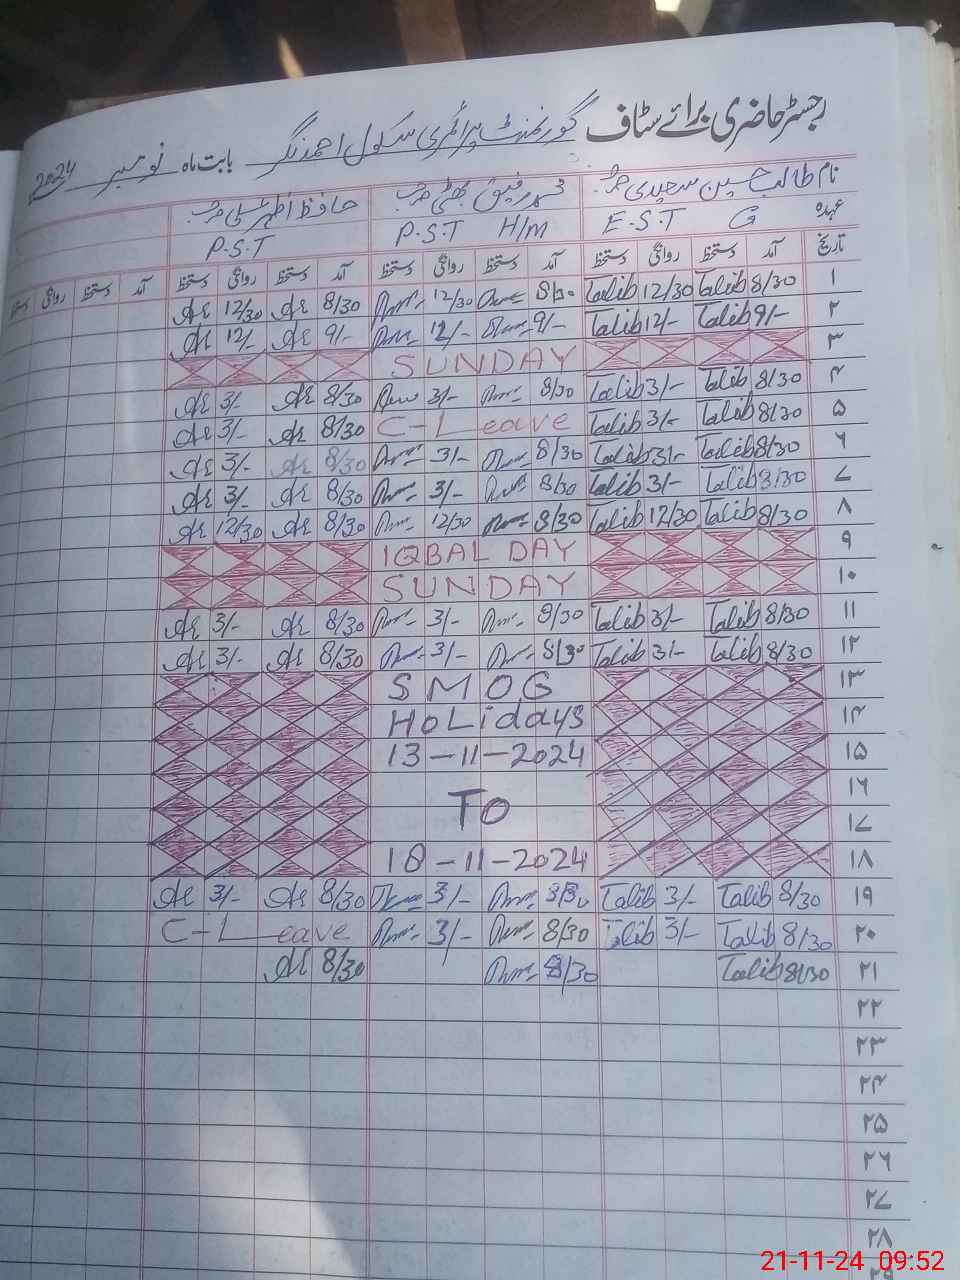 رجسٹر حاضری برائے سٹاف گورنمنٹ پرائمری سکول احمد نگر بابت ماہ نومبر 2024
نام طالب حسین سعیدی صاحب محمد رفیق بھٹی صاحب حافظ اظہر علی صاحب
عہدہ E.S.T G P.S.T H/M P.S.T
تاریخ آمد دستخط روانگی دستخط آمد دستخط روانگی دستخط آمد دستخط روانگی دستخط آمد دستخط روانگی دستخط
۱ 8/30 Talib 12/30 Talib 8/30 12/30 8/30 12/30
۲ 9/- Talib 12/- Talib 9/- 12/- 9/- 12/-
۳ SUNDAY
۴ 8/30 Talib 3/- Talib 8/30 3/- 8/30 3/-
۵ 8/30 Talib 3/- Talib C-Leave 8/30 3/-
۶ 8/30 Talib 3/- Talib 8/30 3/- 8/30 3/-
۷ 8/30 Talib 3/- Talib 8/30 3/- 8/30 3/-
۸ 8/30 Talib 12/30 Talib 8/30 12/30 8/30 12/30
۹ IQBAL DAY
۱۰ SUNDAY
۱۱ 8/30 Talib 3/- Talib 8/30 3/- 8/30 3/-
۱۲ 8/30 Talib 3/- Talib 8/30 3/- 8/30 3/-
۱۳ SMOG
۱۴ HoLidays
۱۵ 13-11-2024
۱۶
To
۱۷
۱۸ 18-11-2024
۱۹ 8/30 Talib 3/- Talib 8/30 3/- 8/30 3/-
۲۰ 8/30 Talib 3/- Talib 8/30 3/- C-Leave
۲۱ 8/30 Talib 8/30 8/30
۲۲
۲۳
۲۴
۲۵
۲۶
۲۷
۲۸
۲۹
21-11-24 09:52